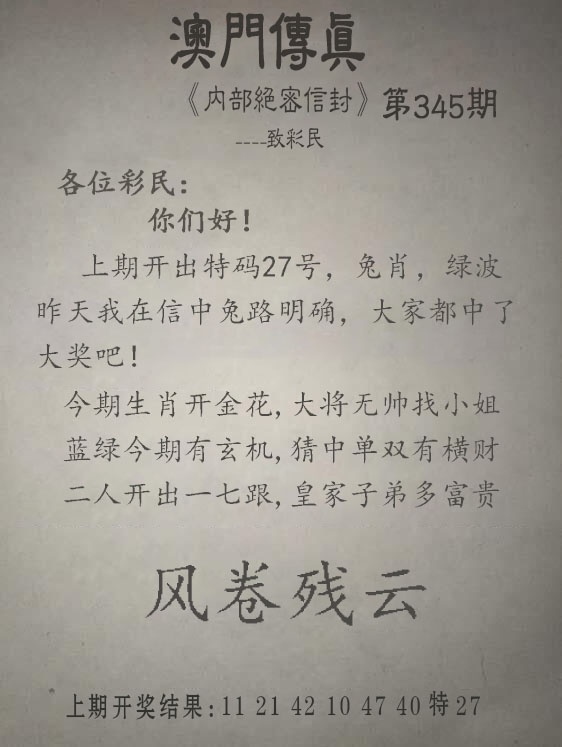 澳門傳眞
《内部絕密信封》第345期
----致彩民
各位彩民：
你们好！
上期开出特码27号，兔肖，绿波
昨天我在信中兔路明确，大家都中了
大奖吧！
今期生肖开金花,大将无帅找小姐
蓝绿今期有玄机,猜中单双有横财
二人开出一七跟,皇家子弟多富贵
风卷残云
上期开奖结果:11 21 42 10 47 40 特 27